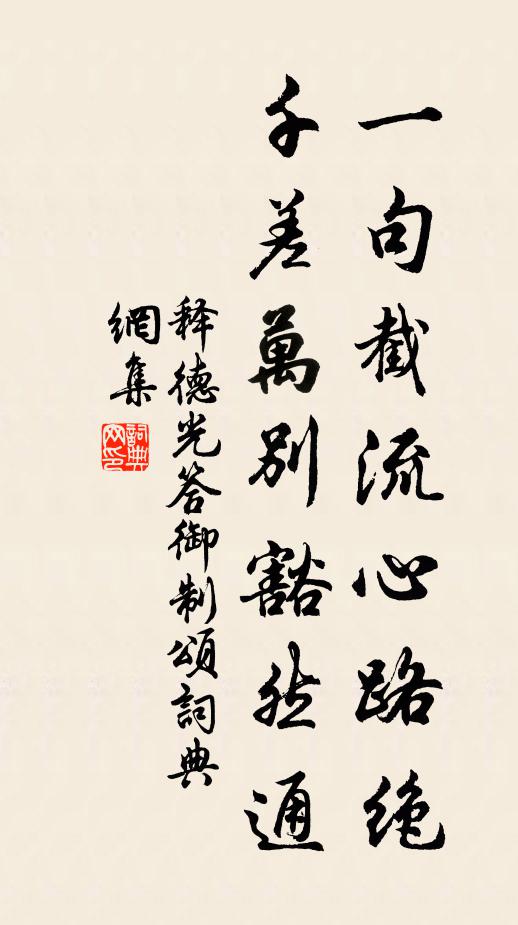 一句截流心路绝
千差萬別豁然通
释德光答御制頌詞典
網集
詞典
网印